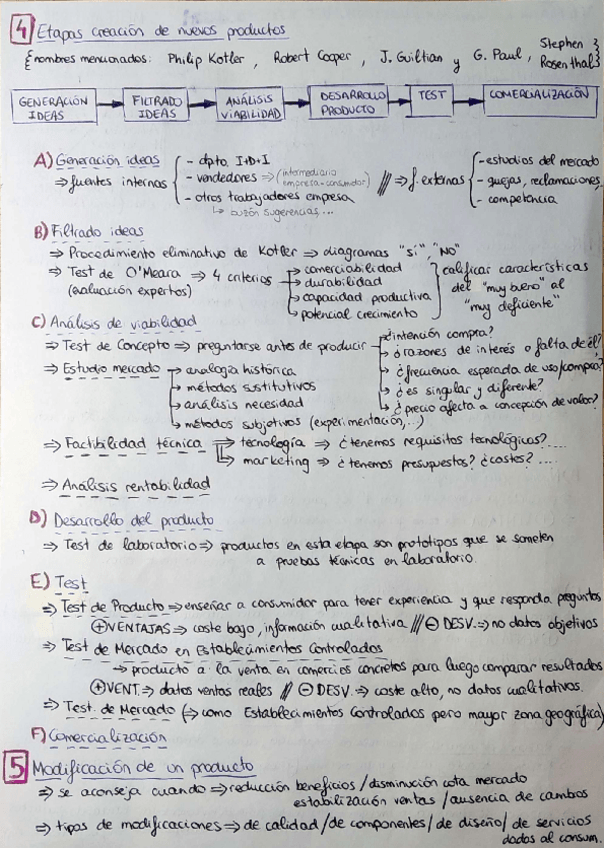 4 Etapas creación de nuevos productos
{nombres mencionados: Philip Kotler, Robert Cooper, J. Guiltian y G. Paul, Stephen Rosenthal}
GENERACIÓN IDEAS → FILTRADO IDEAS → ANÁLISIS VIABILIDAD → DESARROLLO PRODUCTO → TEST → COMERCIALIZACIÓN
A) Generación ideas
⇒ fuentes internas
- dpto. I+D+I
- vendedores ⇒ (intermediario empresa-consumidor)
- otros trabajadores empresa
↳ buzón sugerencias...
/// ⇒ f. externas
- estudios del mercado
- quejas, reclamaciones,
- competencia
B) Filtrado ideas
⇒ Procedimiento eliminativo de Kotler ⇒ diagramas "sí", "NO"
⇒ Test de O'Meara ⇒ 4 criterios
(evaluación expertos)
→ comerciabilidad
→ durabilidad
→ capacidad productiva
→ potencial crecimiento
calificar características
del "muy bueno" al
"muy deficiente"
C) Análisis de viabilidad
⇒ Test de Concepto ⇒ preguntarse antes de producir
¿intención compra?
¿razones de interés o falta de él?
¿frecuencia esperada de uso/compra?
¿es singular y diferente?
¿precio afecta a concepción de valor?
⇒ Estudio mercado
→ analogía histórica
→ métodos sustitutivos
→ análisis necesidad
→ métodos subjetivos (experimentación,...)
⇒ Factibilidad técnica
⇒ tecnología ⇒ ¿tenemos requisitos tecnológicos?....
⇒ marketing ⇒ ¿tenemos presupuestos? ¿costes? ....
⇒ Análisis rentabilidad
D) Desarrollo del producto
⇒ Test de laboratorio ⇒ productos en esta etapa son prototipos que se someten
a pruebas técnicas en laboratorio.
E) Test
⇒ Test de Producto ⇒ enseñar a consumidor para tener experiencia y que responda preguntas
⊕ VENTAJAS ⇒ coste bajo, información cualitativa /// ⊖ DESV. ⇒ no datos objetivos
⇒ Test de Mercado en Establecimientos Controlados
→ producto a la venta en comercios concretos para luego comparar resultados
⊕ VENT. ⇒ datos ventas reales // ⊖ DESV. ⇒ coste alto, no datos cualitativos.
⇒ Test. de Mercado (⇒ como Establecimientos Controlados pero mayor zona geográfica)
F) Comercialización
5 Modificación de un producto
⇒ se aconseja cuando ⇒ reducción beneficios / disminución cuota mercado
estabilización ventas / ausencia de cambios
⇒ tipos de modificaciones ⇒ de calidad / de componentes / de diseño / de servicios
dados al consum.